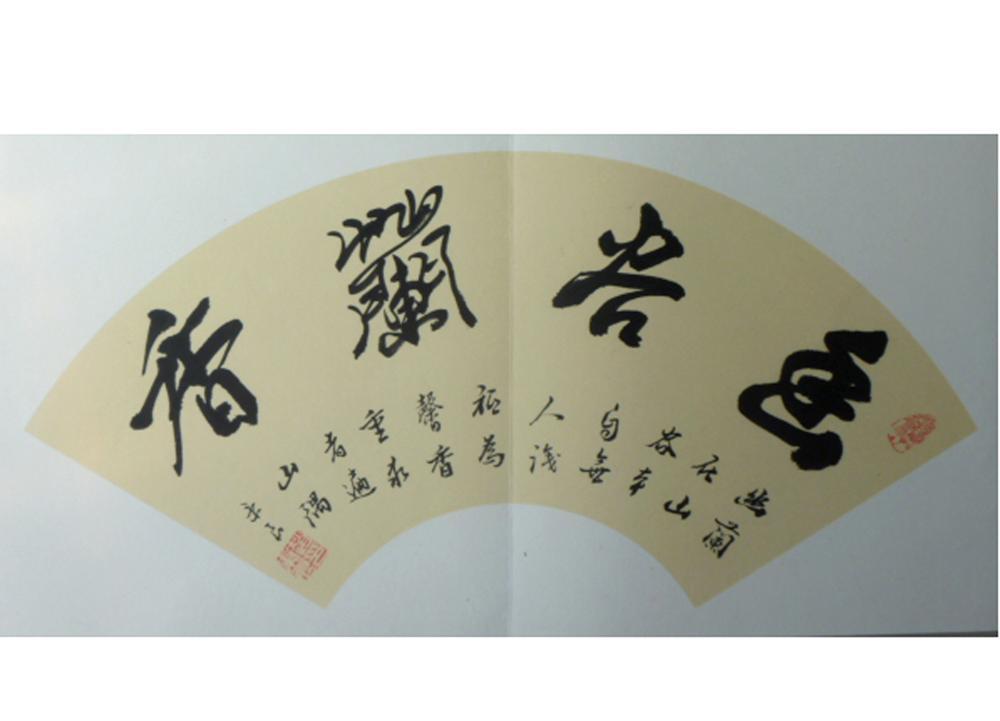 幽谷蘭香
幽蘭
在山
谷本
自無
人識
祗為
馨香
重求
者遍
山隅